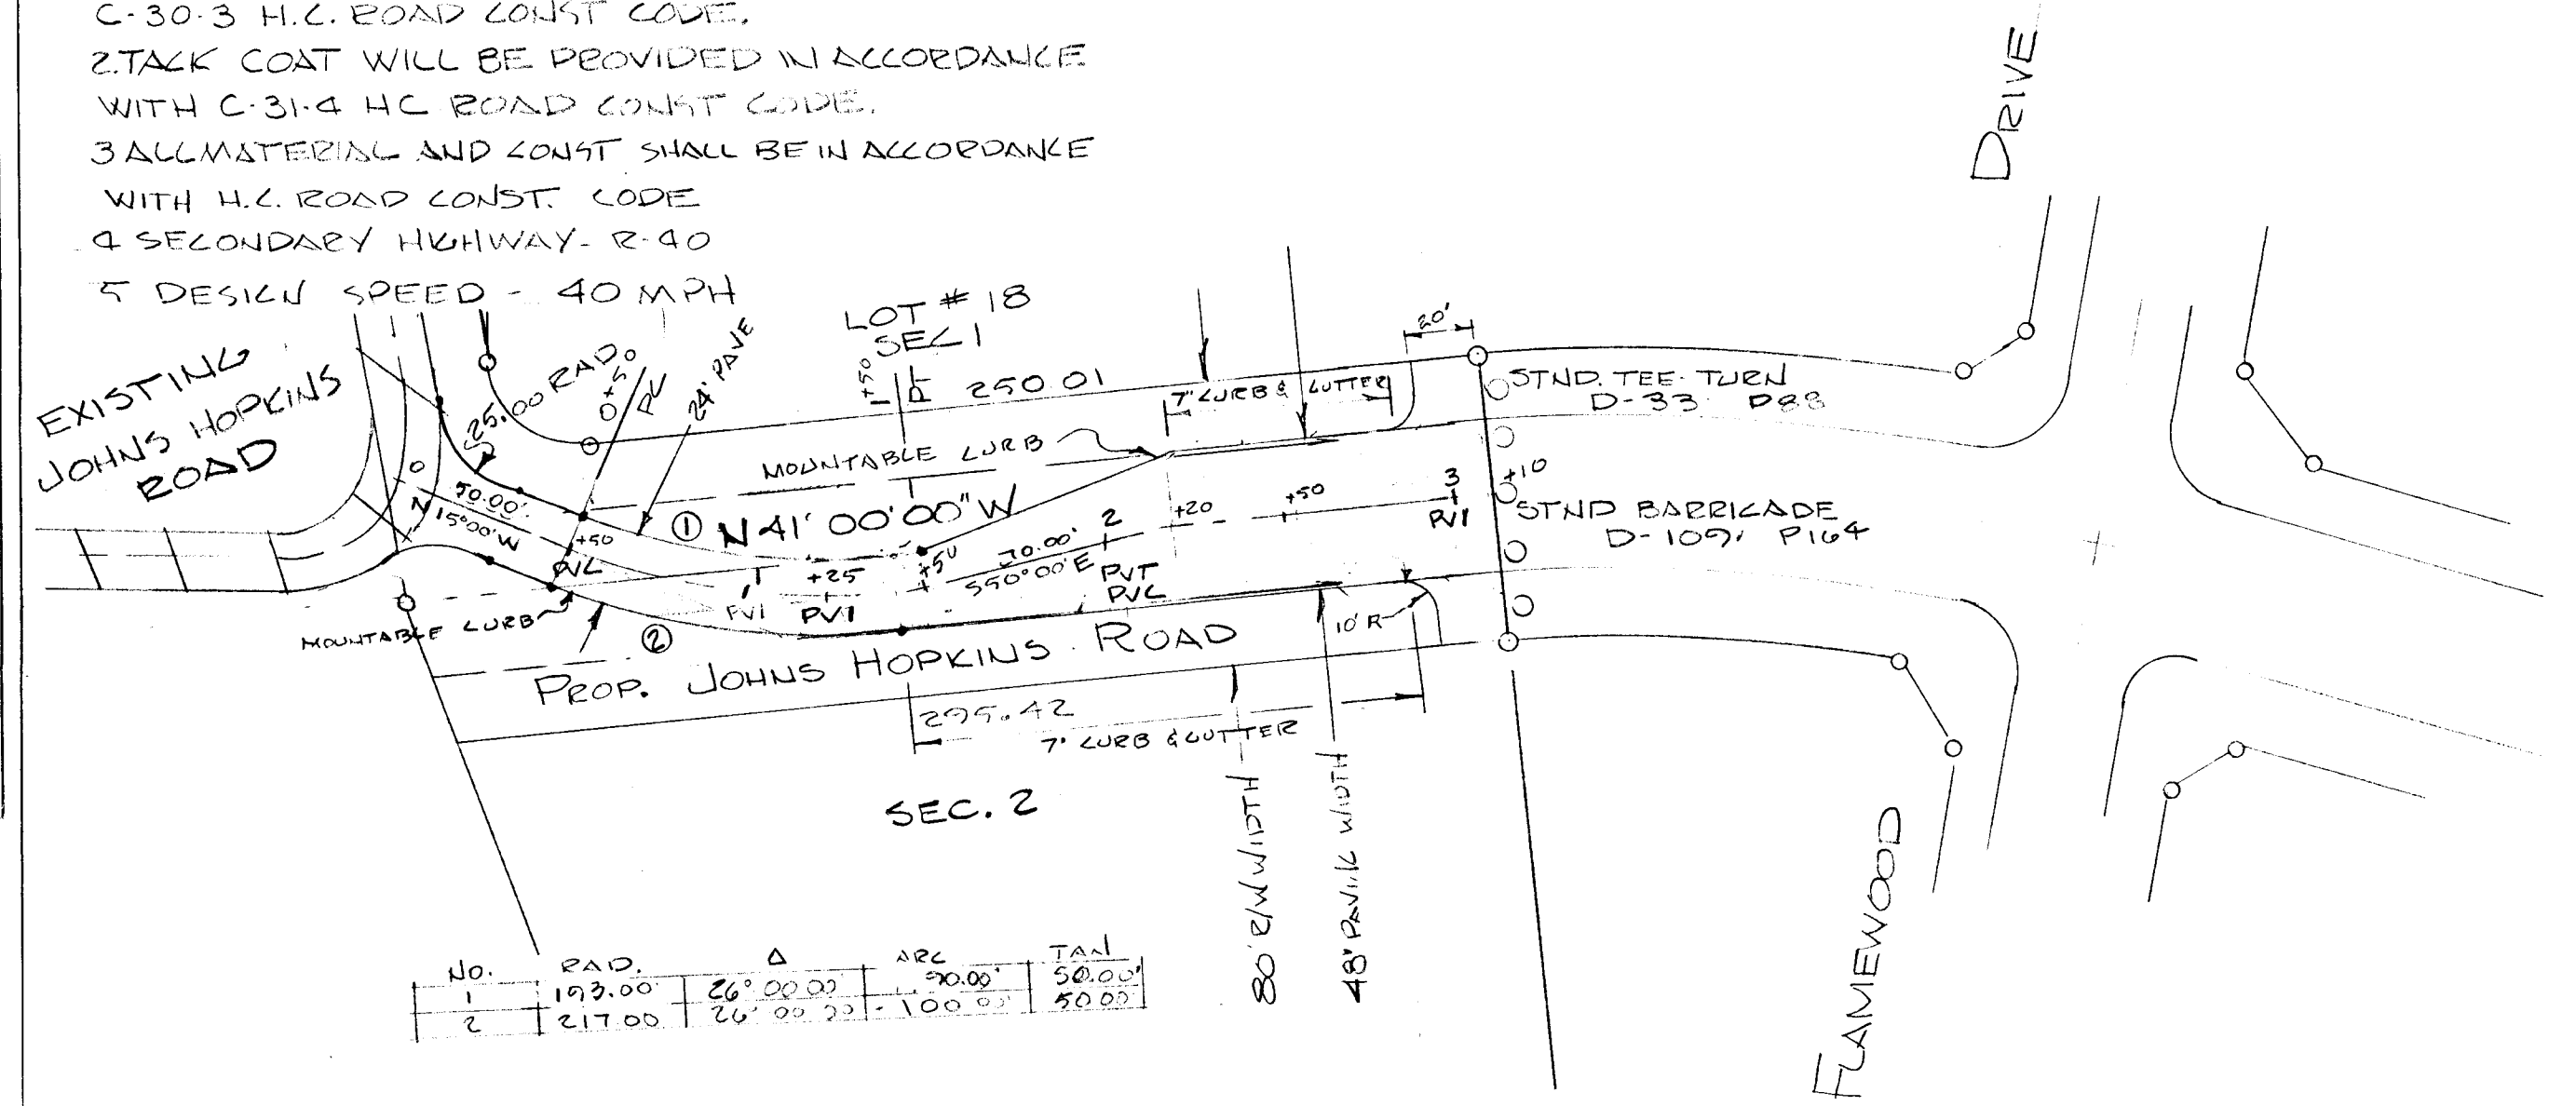 C-30-3 H.C. ROAD CONST CODE.
2. TACK COAT WILL BE PROVIDED IN ACCORDANCE
WITH C-31-4 HC ROAD CONST CODE.
3 ALL MATERIAL AND CONST SHALL BE IN ACCORDANCE
WITH H.C. ROAD CONST. CODE
4 SECONDARY HIGHWAY - R-40
5 DESIGN SPEED - 40 MPH
DRIVE
EXISTING
JOHNS HOPKINS
ROAD
25.00 RAD.
0+50
PC
24' PAVE
LOT # 18
SEC 1
1+50
PT
250.01
20'
7" CURB & GUTTER
STND. TEE-TURN
D-33 P88
MOUNTABLE CURB
0
50.00'
N 15°00' W
+50
PVC
① N 41° 00' 00" W
1
PVI
+25
PVI
+50
70.00'
S50°00' E
2
PVT
PVC
+20
+50
3
PVI
+10
STND BARRICADE
D-109, P164
MOUNTABLE CURB
②
10' R
PROP. JOHNS HOPKINS ROAD
295.42
7" CURB & GUTTER
SEC. 2
80' R/W WIDTH
48' PAVING WIDTH
FLAMEWOOD
NO. RAD. Δ ARC TAN
1 193.00' 26° 00 00 90.00' 50.00'
2 217.00 26° 00 00 100.00' 50.00